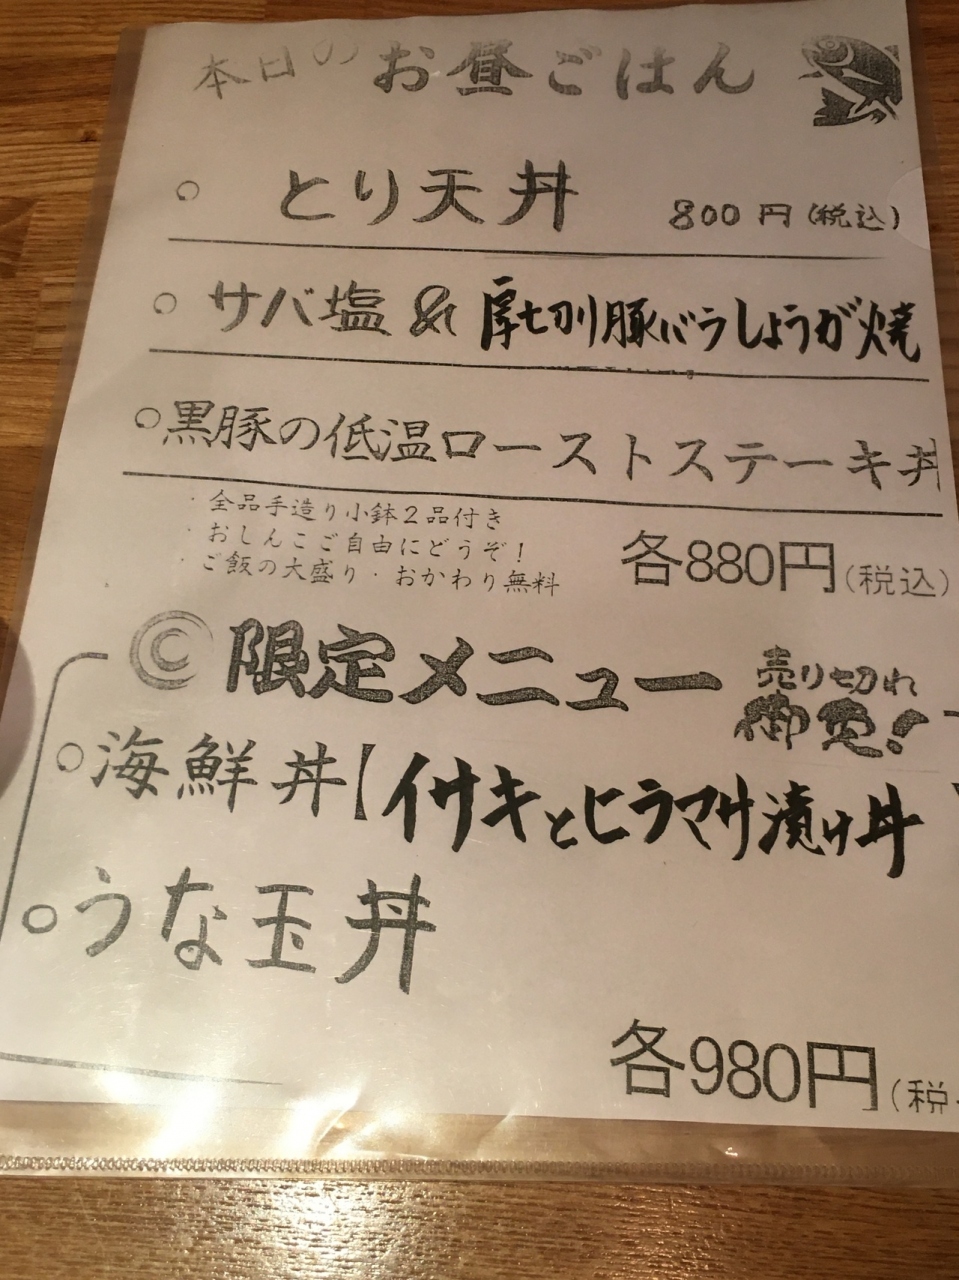 本日の お昼ごはん
○ とり天丼 800円(税込)
○ サバ塩 & 厚切り豚バラしょうが焼
○黒豚の低温ローストステーキ丼
・全品手造り小鉢2品付き
・おしんこご自由にどうぞ!
・ご飯の大盛り・おかわり無料
各880円(税込)
◎限定メニュー 売り切れ御免!
○海鮮丼【イサキとヒラマサ漬け丼
○うな玉丼
各980円(税